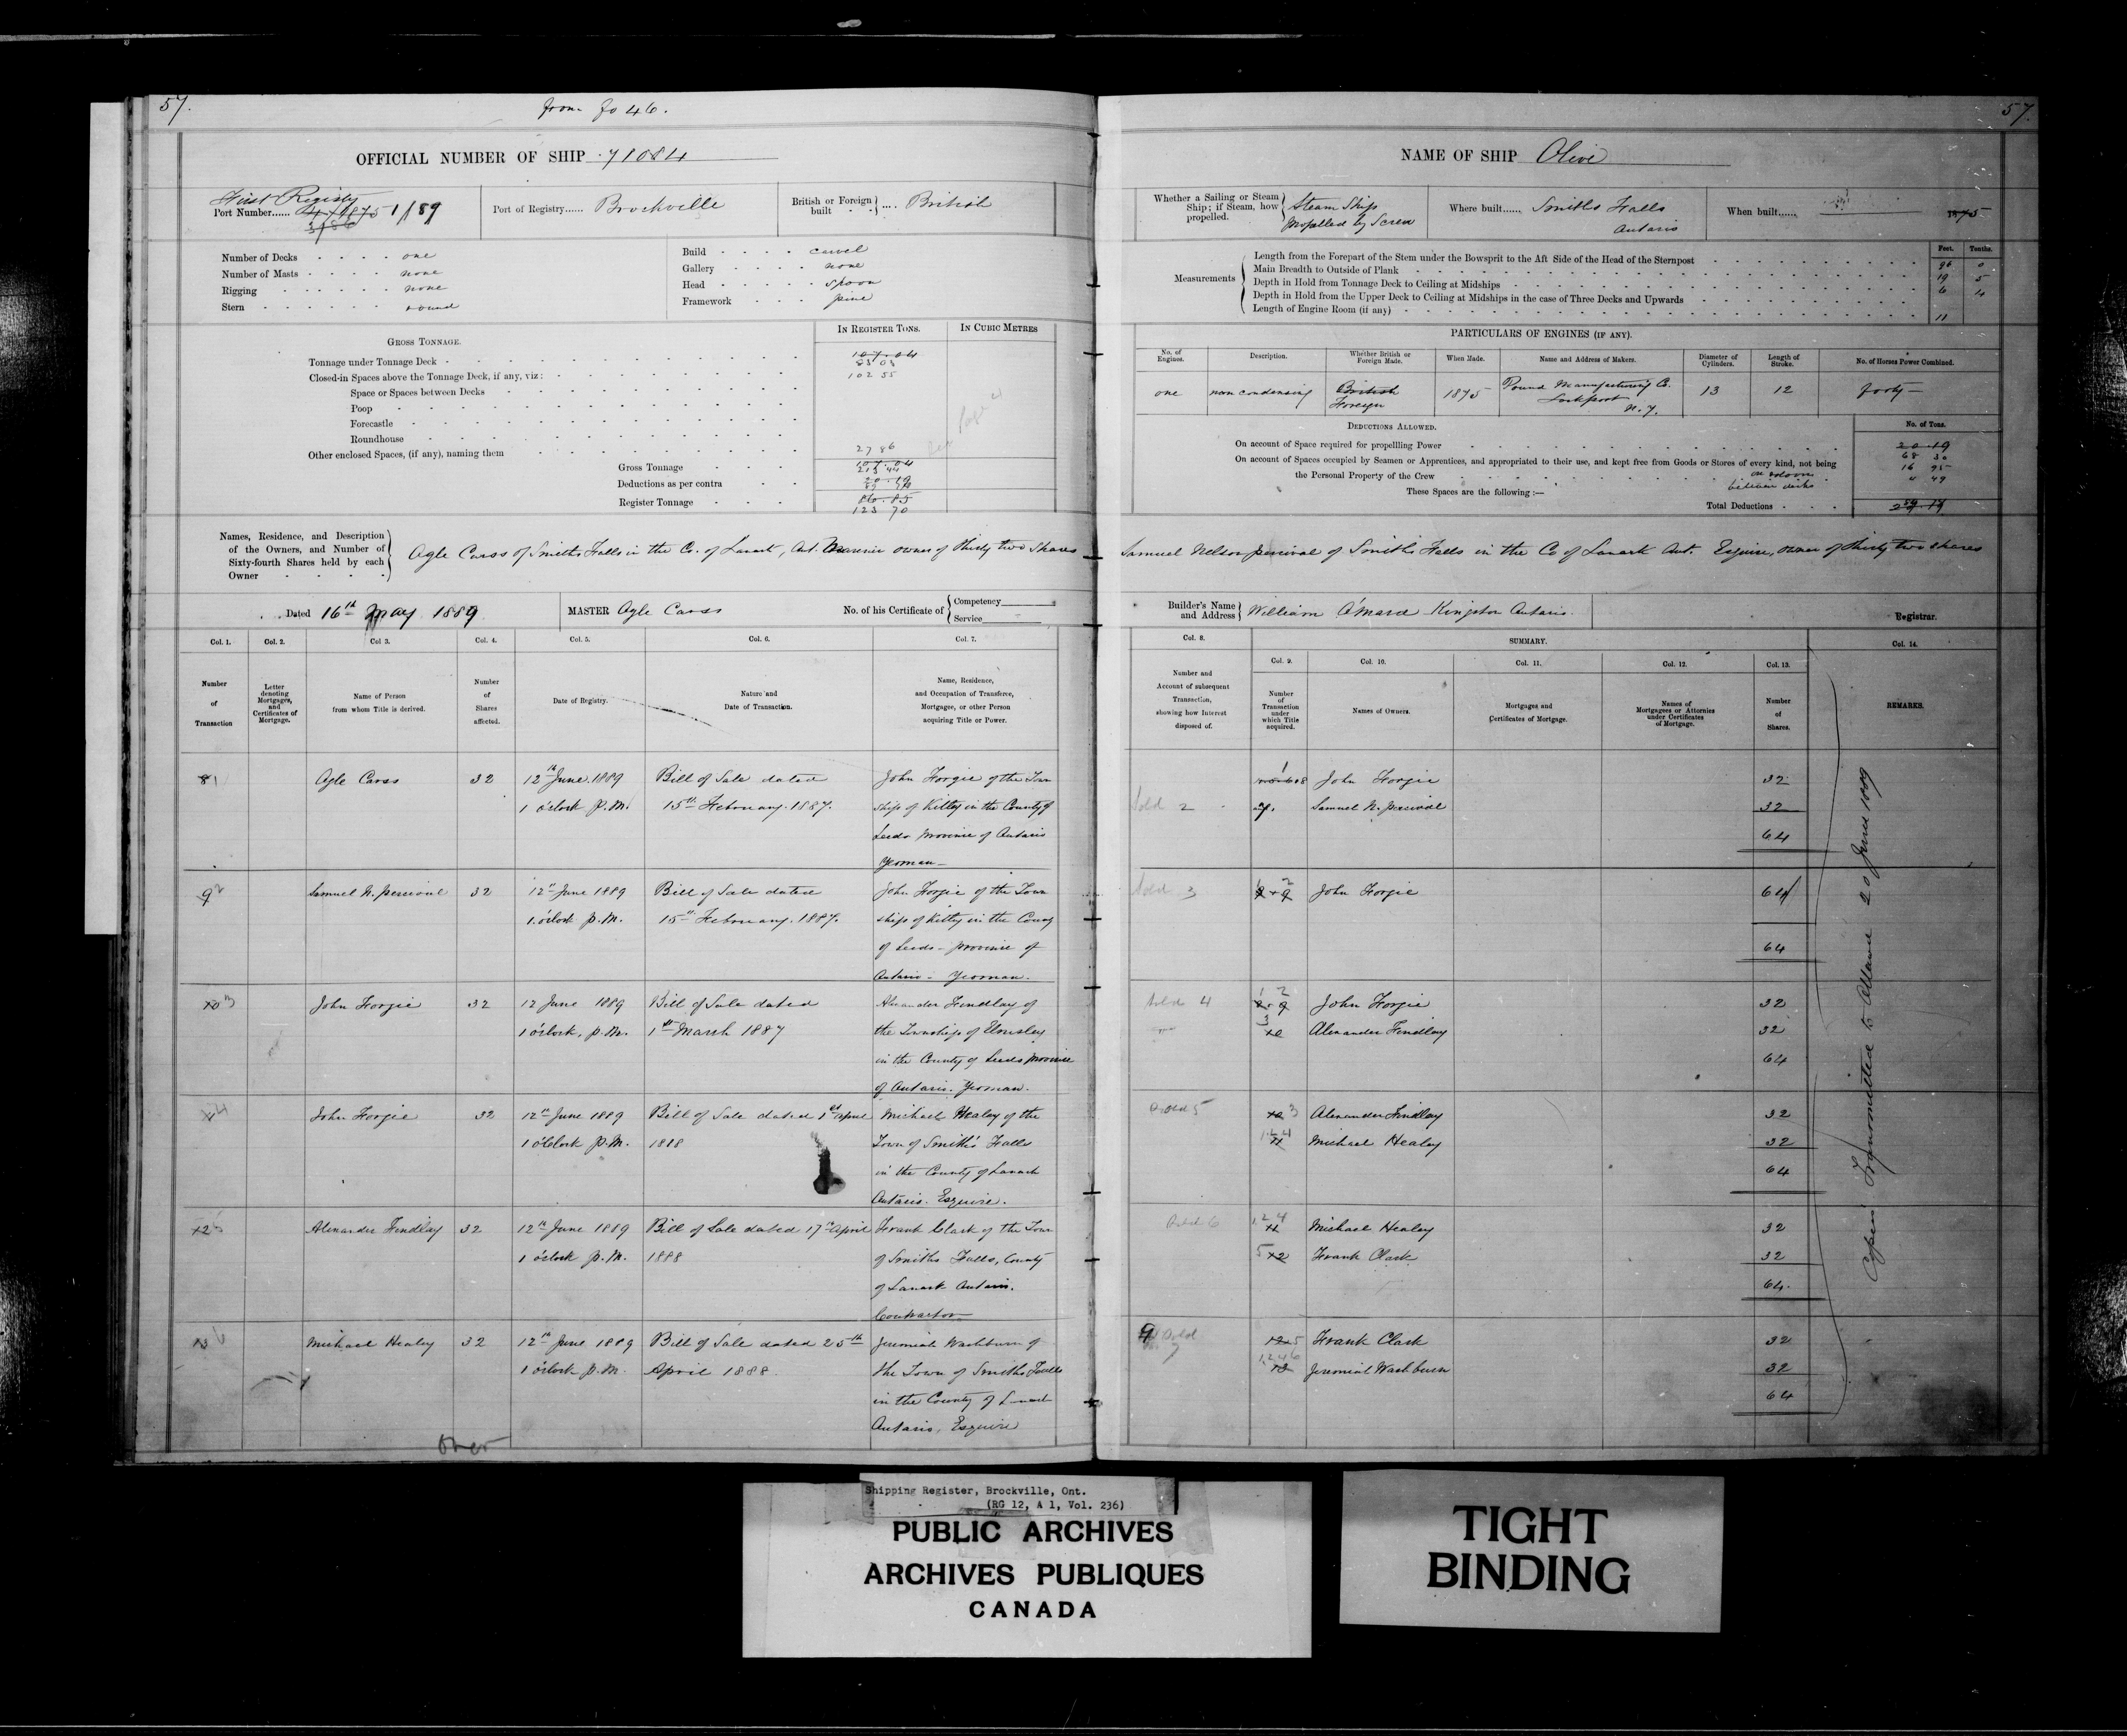 57.
from fo 46.
OFFICIAL NUMBER OF SHIP 71084
First Registry
Port Number...... 4/1875 1/89
3/86
Port of Registry...... Brockville
British or Foreign built .... British
Number of Decks one
Number of Masts none
Rigging none
Stern round
Build carvel
Gallery none
Head spoon
Framework pine
GROSS TONNAGE.
IN REGISTER TONS.
IN CUBIC METRES
Tonnage under Tonnage Deck 107.04
83 03
Closed-in Spaces above the Tonnage Deck, if any, viz: 102 55
Space or Spaces between Decks
Poop
Forecastle
Roundhouse
Other enclosed Spaces, (if any), naming them 27 86
Gross Tonnage 107.04
213 44
Deductions as per contra 20.19
Register Tonnage 86.85
123 70
Names, Residence, and Description
of the Owners, and Number of
Sixty-fourth Shares held by each
Owner
Ogle Carss of Smiths Falls in the Co. of Lanark, Ont. owner of thirty two shares
Dated 16th May 1889
MASTER Ogle Carss
No. of his Certificate of Competency
Service
Col. 1. Col. 2. Col 3. Col. 4. Col. 5. Col. 6. Col. 7.
Number of Transaction
Letter denoting Mortgages, and Certificates of Mortgage.
Name of Person from whom Title is derived.
Number of Shares affected.
Date of Registry.
Nature and Date of Transaction.
Name, Residence, and Occupation of Transferee, Mortgagee, or other Person acquiring Title or Power.
8 1 Ogle Carss 32 12th June 1889 Bill of Sale dated John Forgie of the Town
1 o'clock P.M. 15th February. 1887. ship of Kitley in the County of
Leeds Province of Ontario
Yeoman
9 2 Samuel N. Percival 32 12th June 1889 Bill of Sale dated John Forgie of the Town
1 o'clock P.M. 15th February. 1887. ship of Kitley in the County
of Leeds - Province of
Ontario - Yeoman.
10 3 John Forgie 32 12 June 1889 Bill of Sale dated Alexander Findlay of
1 o'clock, P.M. 1st March 1887 the Township of Elmsley
in the County of Leeds Province
of Ontario. Yeoman.
11 4 John Forgie 32 12th June 1889 Bill of Sale dated 1st April Michael Healey of the
1 o'clock P.M. 1888 Town of Smith's Falls
in the County of Lanark
Ontario. Esquire.
12 5 Alexander Findlay 32 12th June 1889 Bill of Sale dated 17th April Frank Clark of the Town
1 o'clock P.M. 1888 of Smiths Falls, County
of Lanark Ontario.
Contractor
13 6 Michael Healey 32 12th June 1889 Bill of Sale dated 25th Jeremiah Washburn of
1 o'clock P.M. April 1888 the Town of Smiths Falls
in the County of Lanark
Ontario, Esquire
over
57.
NAME OF SHIP Olive
Whether a Sailing or Steam Ship; if Steam, how propelled. Steam Ship
Propelled by Screw
Where built...... Smiths Falls
Ontario
When built...... 1875
Measurements
Feet. Tenths.
Length from the Forepart of the Stem under the Bowsprit to the Aft Side of the Head of the Sternpost 96 0
Main Breadth to Outside of Plank 19 5
Depth in Hold from Tonnage Deck to Ceiling at Midships 6 4
Depth in Hold from the Upper Deck to Ceiling at Midships in the case of Three Decks and Upwards
Length of Engine Room (if any) 11
PARTICULARS OF ENGINES (IF ANY).
No. of Engines. Description. Whether British or Foreign Made. When Made. Name and Address of Makers. Diameter of Cylinders. Length of Stroke. No. of Horses Power Combined.
one non condensing British 1875 Pound Manufacturing Co. 13 12 forty
Foreign Lockport
N.Y.
DEDUCTIONS ALLOWED.
No. of Tons.
On account of Space required for propelling Power 20.19
68 30
On account of Spaces occupied by Seamen or Apprentices, and appropriated to their use, and kept free from Goods or Stores of every kind, not being 16 95
the Personal Property of the Crew
between decks
" 49
These Spaces are the following:—
Total Deductions
Samuel Nelson Percival of Smiths Falls in the Co of Lanark Ont. Esquire, owner of thirty two shares
Builder's Name and Address William O'Mara Kingston Ontario.
Registrar.
Col. 8. SUMMARY. Col. 14.
Col. 9. Col. 10. Col. 11. Col. 12. Col. 13.
Number and Account of subsequent Transaction, showing how Interest disposed of.
Number of Transaction under which Title acquired.
Names of Owners.
Mortgages and Certificates of Mortgage.
Names of Mortgagees or Attornies under Certificates of Mortgage.
Number of Shares.
REMARKS.
1 8 John Forgie 32
Sold 2 7. Samuel N. Percival 32
64
Sold 3 1 2 8+9 John Forgie 64
64
Sold 4 1 2 8+9 John Forgie 32
3 10 Alexander Findlay 32
64
Sold 5 10 3 Alexander Findlay 32
1.2.4 11 Michael Healey 32
64
Sold 6 1.2.4 11 Michael Healey 32
5 12 Frank Clark 32
64.
9 Sold 7 12 5 Frank Clark 32
1.2.4.6 13 Jeremiah Washburn 32
64
Copies Transmitted to Ottawa 20 June 1889
Shipping Register, Brockville, Ont.
(RG 12, A 1, Vol. 236)
PUBLIC ARCHIVES
ARCHIVES PUBLIQUES
CANADA
TIGHT
BINDING